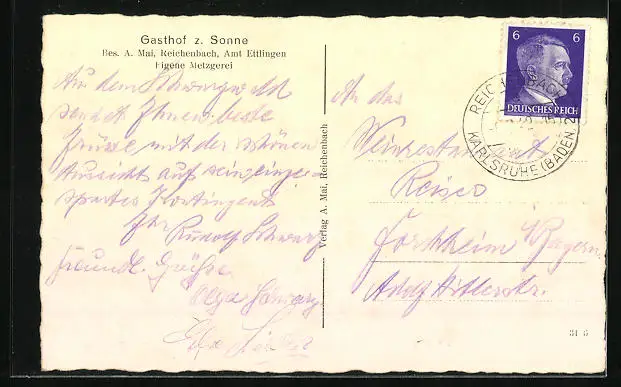 Gasthof z. Sonne
Bes. A. Mai, Reichenbach, Amt Ettlingen
Eigene Metzgerei
Aus dem Schwarzwald
sendet Ihnen beste
Grüsse mit der schönen
Aussicht auf sein einge-
spartes Kontingent
Ihr Rudolf Schwarz
freundl. Grüsse
Olga Schwarz
Verlag A. Mai, Reichenbach
6 6
DEUTSCHES REICH
REICHENBACH
KARLSRUHE (BADEN) 2
An das
Weinrestaurant
Forchheim /Bayern
Adolf Hitlerstr.
31 6